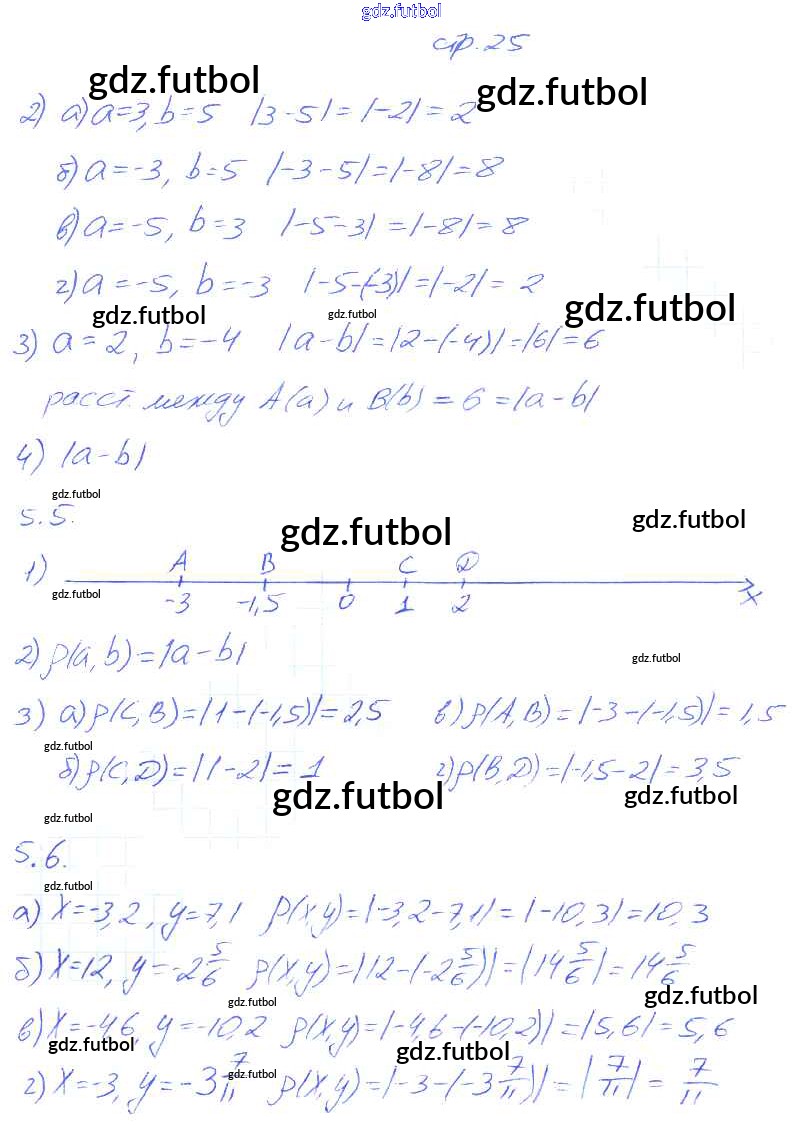 gdz.futbol
стр. 25
gdz.futbol gdz.futbol
2) а) a=3, b=5 |3-5|=|-2|=2
б) a=-3, b=5 |-3-5|=|-8|=8
в) a=-5, b=3 |-5-3|=|-8|=8
г) a=-5, b=-3 |-5-(-3)|=|-2|=2
gdz.futbol gdz.futbol gdz.futbol
3) a=2, b=-4 |a-b|=|2-(-4)|=|6|=6
расст. между A(a) и B(b)=6=|a-b|
4) |a-b|
gdz.futbol
5.5.
gdz.futbol gdz.futbol
1) A B C D
gdz.futbol
-3 -1,5 0 1 2 x
2) ρ(a,b)=|a-b|
gdz.futbol
3) а) ρ(C,B)=|1-(-1,5)|=2,5 в) ρ(A,B)=|-3-(-1,5)|=1,5
gdz.futbol
б) ρ(C,D)=|1-2|=1 г) ρ(B,D)=|-1,5-2|=3,5
gdz.futbol gdz.futbol
gdz.futbol
5.6.
gdz.futbol
а) x=-3,2, y=7,1 ρ(x,y)=|-3,2-7,1|=|-10,3|=10,3
б) x=12, y=-2 5/6 ρ(x,y)=|12-(-2 5/6)|=|14 5/6|=14 5/6
gdz.futbol gdz.futbol
в) x=-4,6, y=-10,2 ρ(x,y)=|-4,6-(-10,2)|=|5,6|=5,6
gdz.futbol gdz.futbol
г) x=-3, y=-3 7/11 ρ(x,y)=|-3-(-3 7/11)|=|7/11|=7/11
gdz.futbol